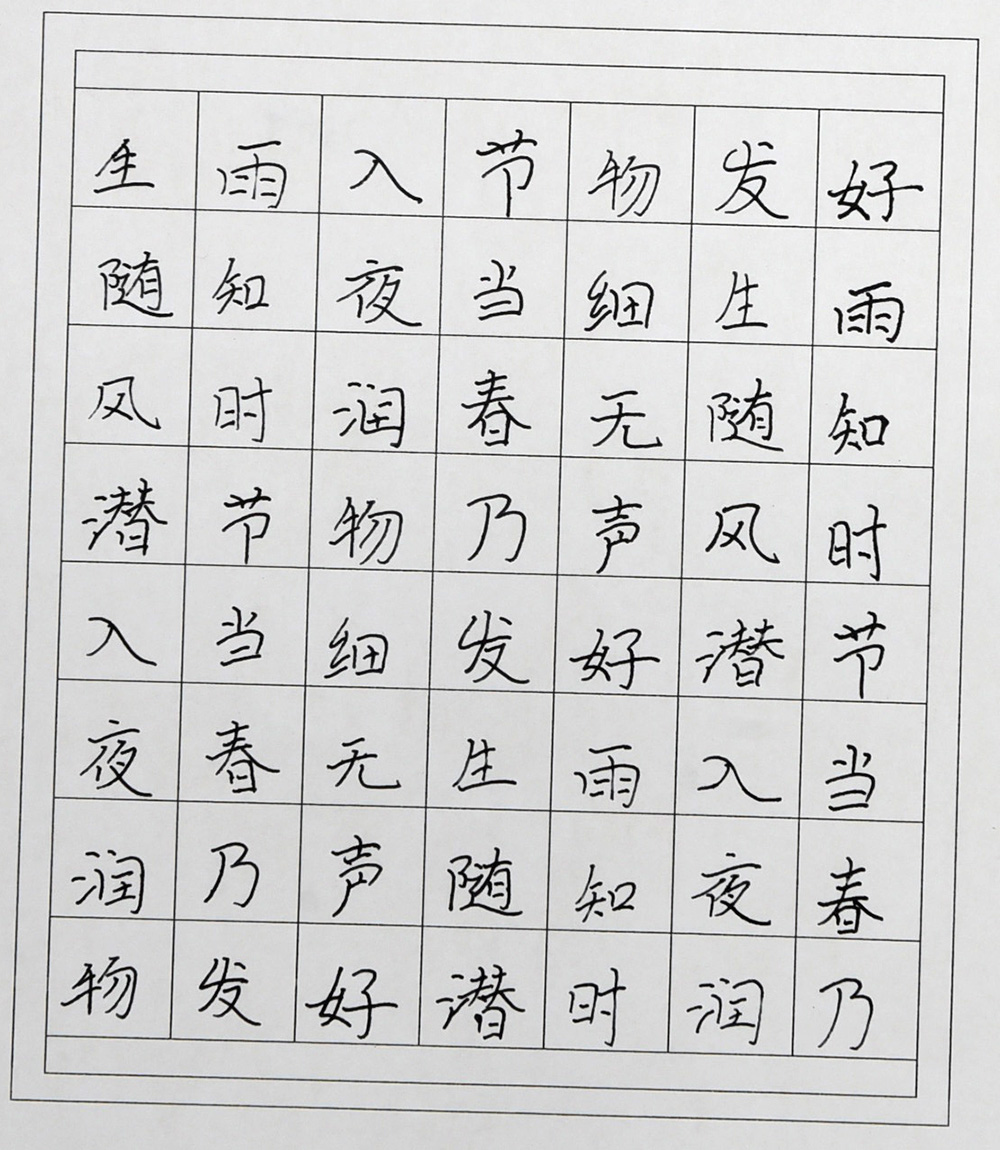 好雨知时节当春乃
发生随风潜入夜润
物细无声好雨知时
节当春乃发生随潜
入夜润物细无声好
雨知时节当春乃发
生随风潜入夜润物